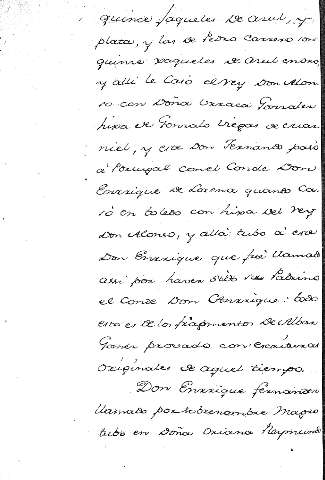 quince jaqueles de azul, y
plata, y los de Pedro Carreno son
quince xaqueles de azul en oro,
y alli le Casò el rey Don Alon
so con Doña Urraca Gonzalez
hixa de Gonzalo Viegas de
niel, y ese Don Fernando pasò
à Portugal con el Conde Don
Enrrique de Lorena quando Ca
sò en toledo con hixa del rey
Don Alonso, y allà tubo à ese
Don Enrrique que fuè llamado
assi por haver sido su Padrino
el Conde Don Enrrique: todo
esto es de los fragmentos de Alvar
Gomez provado con escrituras
originales de aquel tiempo.
Don Enrrique fernandez
llamado por sobrenombre Magro
tubo en Doña Oriana Raymundo